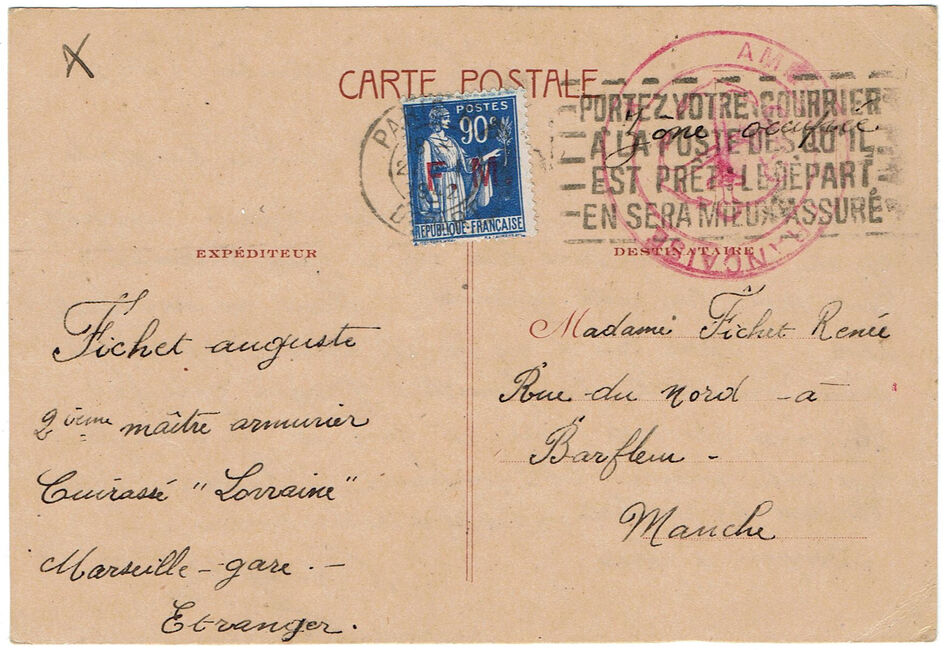 X
CARTE POSTALE
POSTES
90c
F M
RÉPUBLIQUE-FRANÇAISE
PORTEZ VOTRE COURRIER
A LA POSTE DES QU'IL
EST PRÊT. LE DÉPART
EN SERA MIEUX ASSURÉ
Zone occupée.
FRANÇAISE
EXPÉDITEUR
Fichet auguste
2ième maître armurier
Cuirassé "Lorraine"
Marseille-gare.-
Etranger.
DESTINATAIRE
Madame Fichet Renée
Rue du Nord - à
Barfleur -
Manche